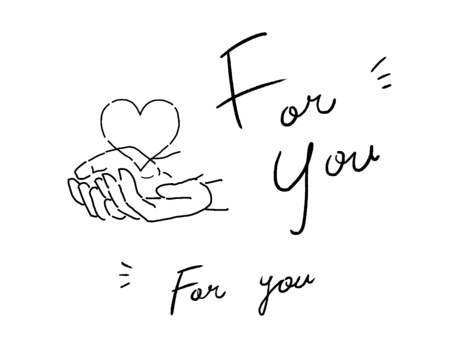 For
You
For you